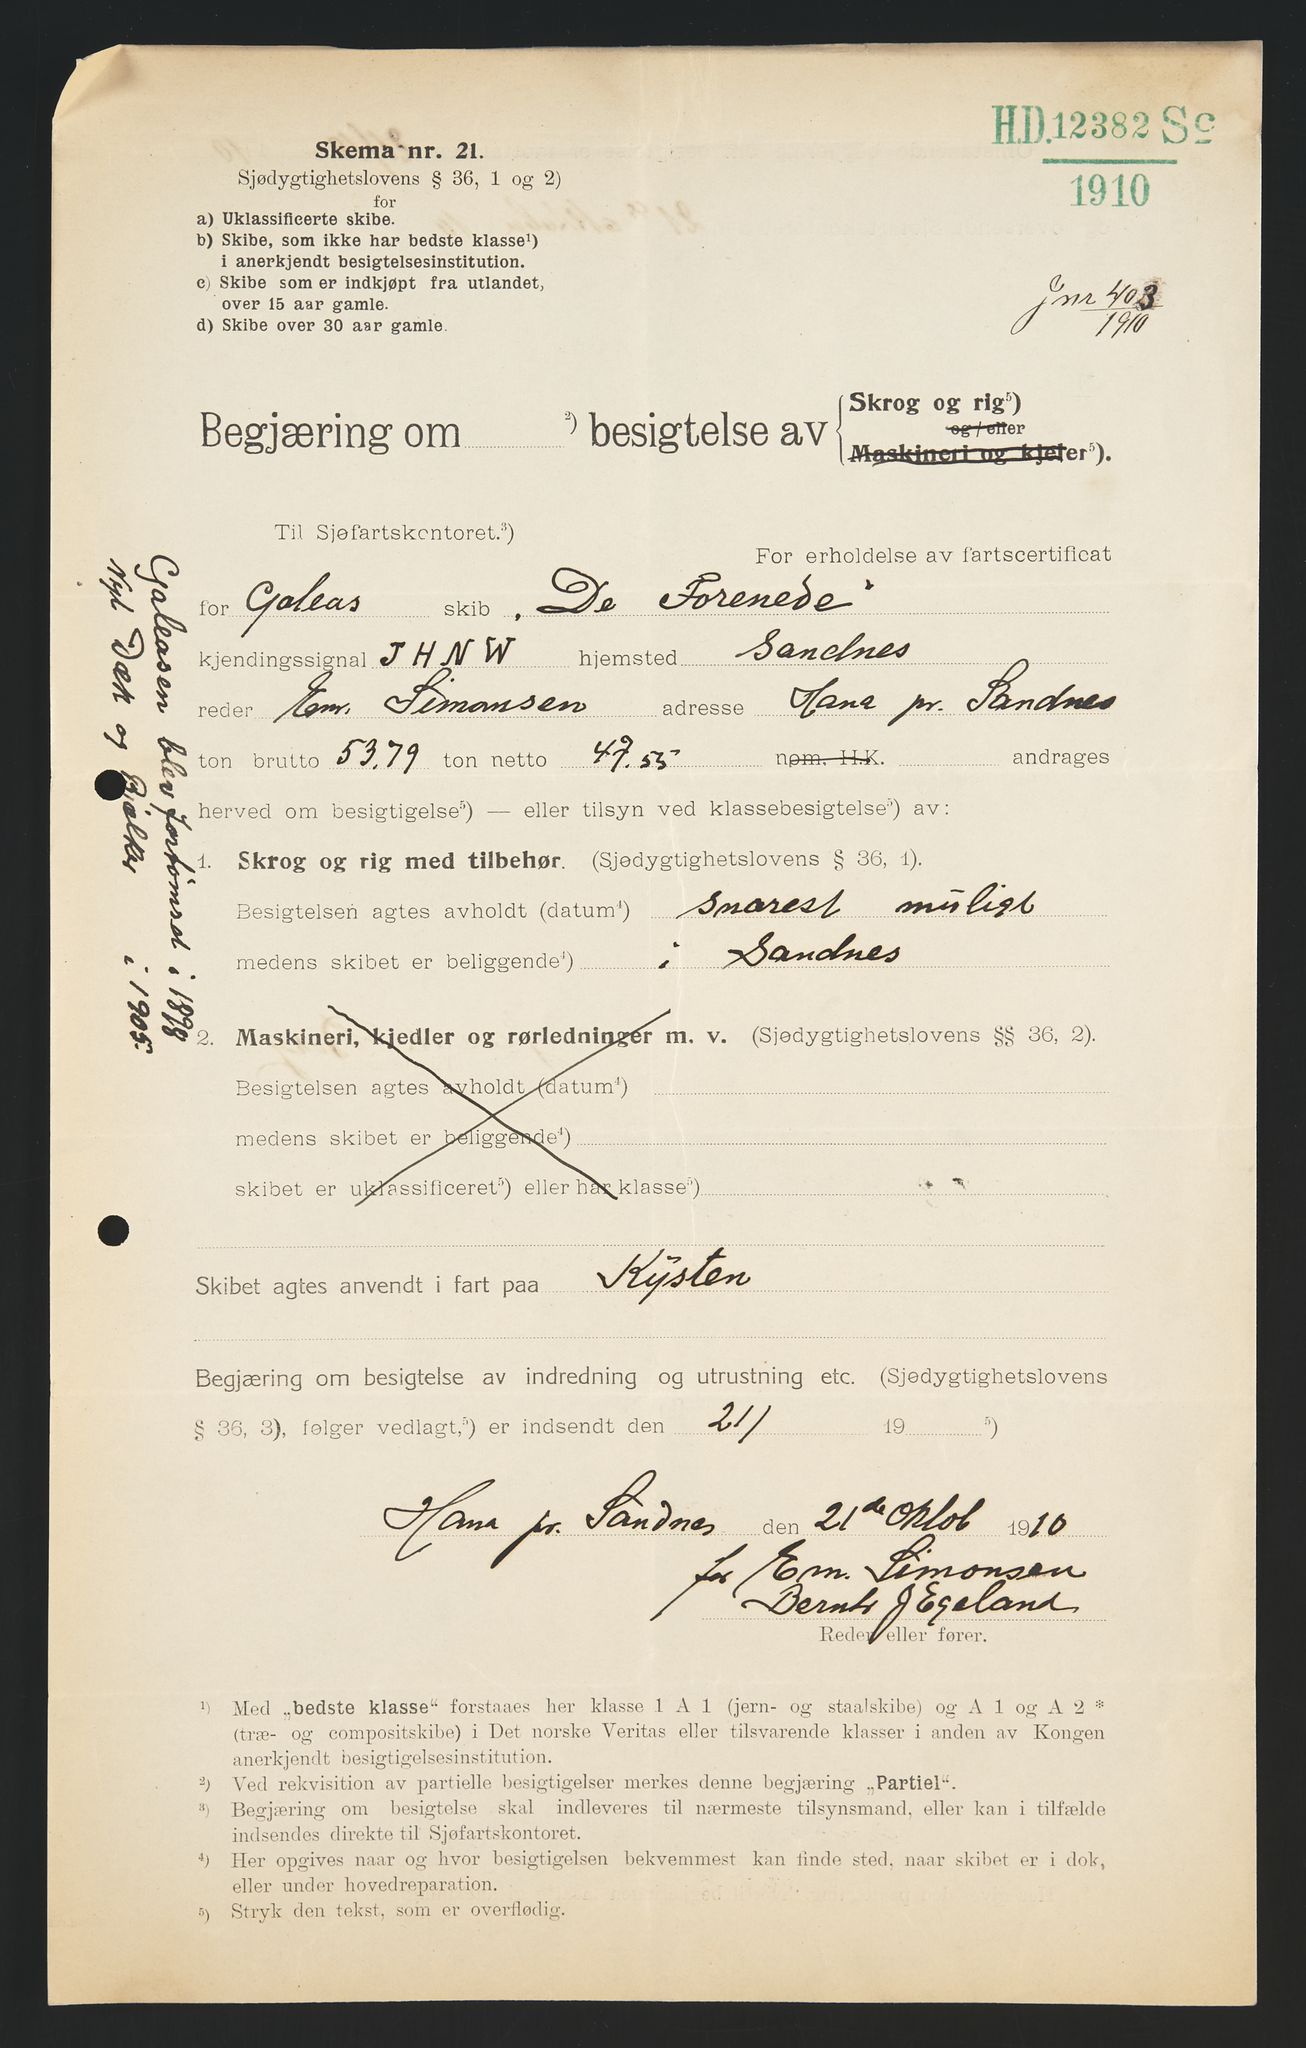 H.D. 12382 Sc
1910
Skema nr. 21.
Sjødygtighetslovens § 36, 1 og 2)
for
a) Uklassificerte skibe.
b) Skibe, som ikke har bedste klasse¹)
i anerkjendt besigtelsesinstitution.
c) Skibe som er indkjøpt fra utlandet,
over 15 aar gamle.
d) Skibe over 30 aar gamle.
Jnr 403
1910
Begjæring om ²) besigtelse av
Skrog og rig⁵)
og/eller
Maskineri og kjeler⁵).
Til Sjøfartskontoret.³)
For erholdelse av fartscertificat
for Galeas skib „De Forenede“
kjendingssignal J H N W hjemsted Sandnes
reder Em. Simonsen adresse Hana pr. Sandnes
ton brutto 53,79 ton netto 49.55 nom. H.K. andrages
herved om besigtigelse⁵) — eller tilsyn ved klassebesigtelse⁵) av:
1. Skrog og rig med tilbehør. (Sjødygtighetslovens § 36, 1).
Besigtelsen agtes avholdt (datum⁴) snarest muligt
medens skibet er beliggende⁴) i Sandnes
2. Maskineri, kjedler og rørledninger m. v. (Sjødygtighetslovens §§ 36, 2).
Besigtelsen agtes avholdt (datum⁴)
medens skibet er beliggende⁴)
skibet er uklassificeret⁵) eller har klasse⁵)
Skibet agtes anvendt i fart paa Kysten
Begjæring om besigtelse av indredning og utrustning etc. (Sjødygtighetslovens
§ 36, 3), følger vedlagt,⁵) er indsendt den 21/ 19 ⁵)
Hana pr. Sandnes den 21de Oktob 1910
for Em. Simonsen
Bernh J Egeland
Reder eller fører.
Galeasen blev fortømret i 1898
Nyt Dæk og Bjælker i 1905.
¹) Med „bedste klasse“ forstaaes her klasse 1 A 1 (jern- og staalskibe) og A 1 og A 2 *
(træ- og compositskibe) i Det norske Veritas eller tilsvarende klasser i anden av Kongen
anerkjendt besigtigelsesinstitution.
²) Ved rekvisition av partielle besigtigelser merkes denne begjæring „Partiel“.
³) Begjæring om besigtelse skal indleveres til nærmeste tilsynsmand, eller kan i tilfælde
indsendes direkte til Sjøfartskontoret.
⁴) Her opgives naar og hvor besigtigelsen bekvemmest kan finde sted, naar skibet er i dok,
eller under hovedreparation.
⁵) Stryk den tekst, som er overflødig.